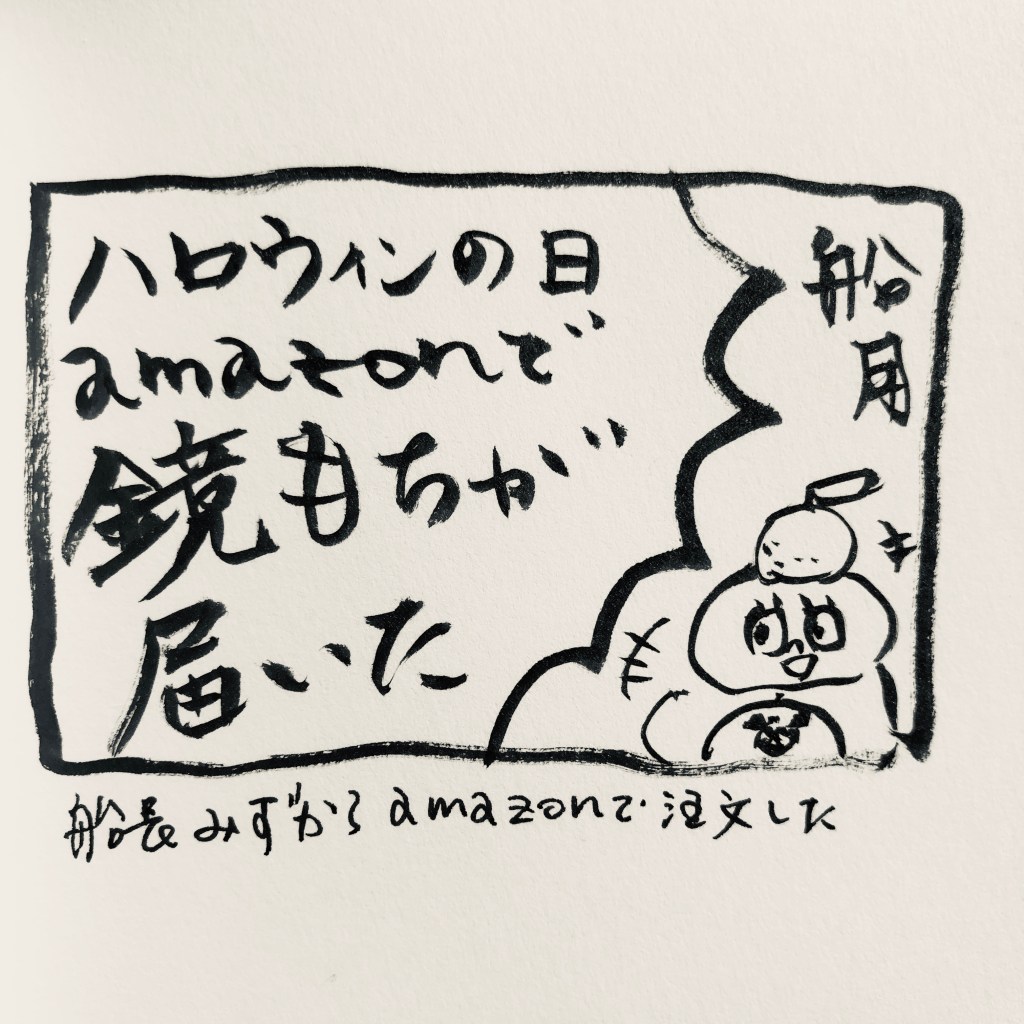 ハロウィンの日
amazonで
鏡もちが
届いた
船月
船長みずから amazonで注文した